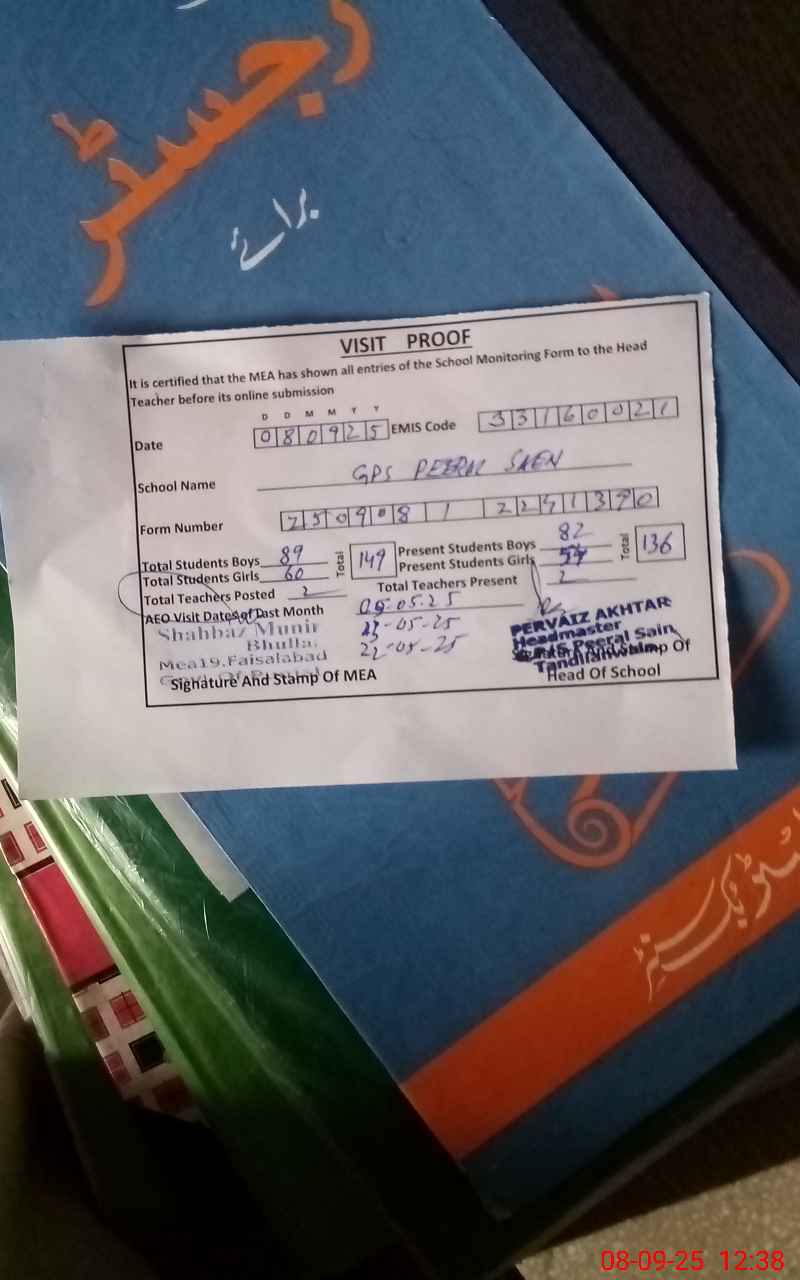 رجسٹر
برائے
VISIT PROOF
It is certified that the MEA has shown all entries of the School Monitoring Form to the Head
Teacher before its online submission
D D M M Y Y
Date 080925 EMIS Code 33160021
School Name GPS PEERAL SAEN
Form Number
Total Students Boys 89 Total 149 Present Students Boys 82 Total 136
Total Students Girls 60 Present Students Girls 54
Total Teachers Posted 2 Total Teachers Present 2
AEO Visit Dates of Last Month 05.05.25
23-05-25
Shahbaz Munir
Bhulla.
Mea19.Faisalabad
Signature And Stamp Of MEA
PERVAIZ AKHTAR
Headmaster
Peeral Sain
Tandlianwala
Stamp Of
Head Of School
08-09-25 12:38